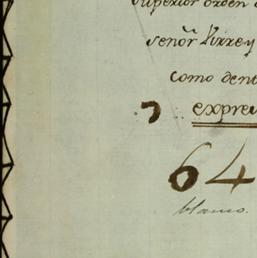 superior orden
señr Virrey
como den
expre
64
blanco.